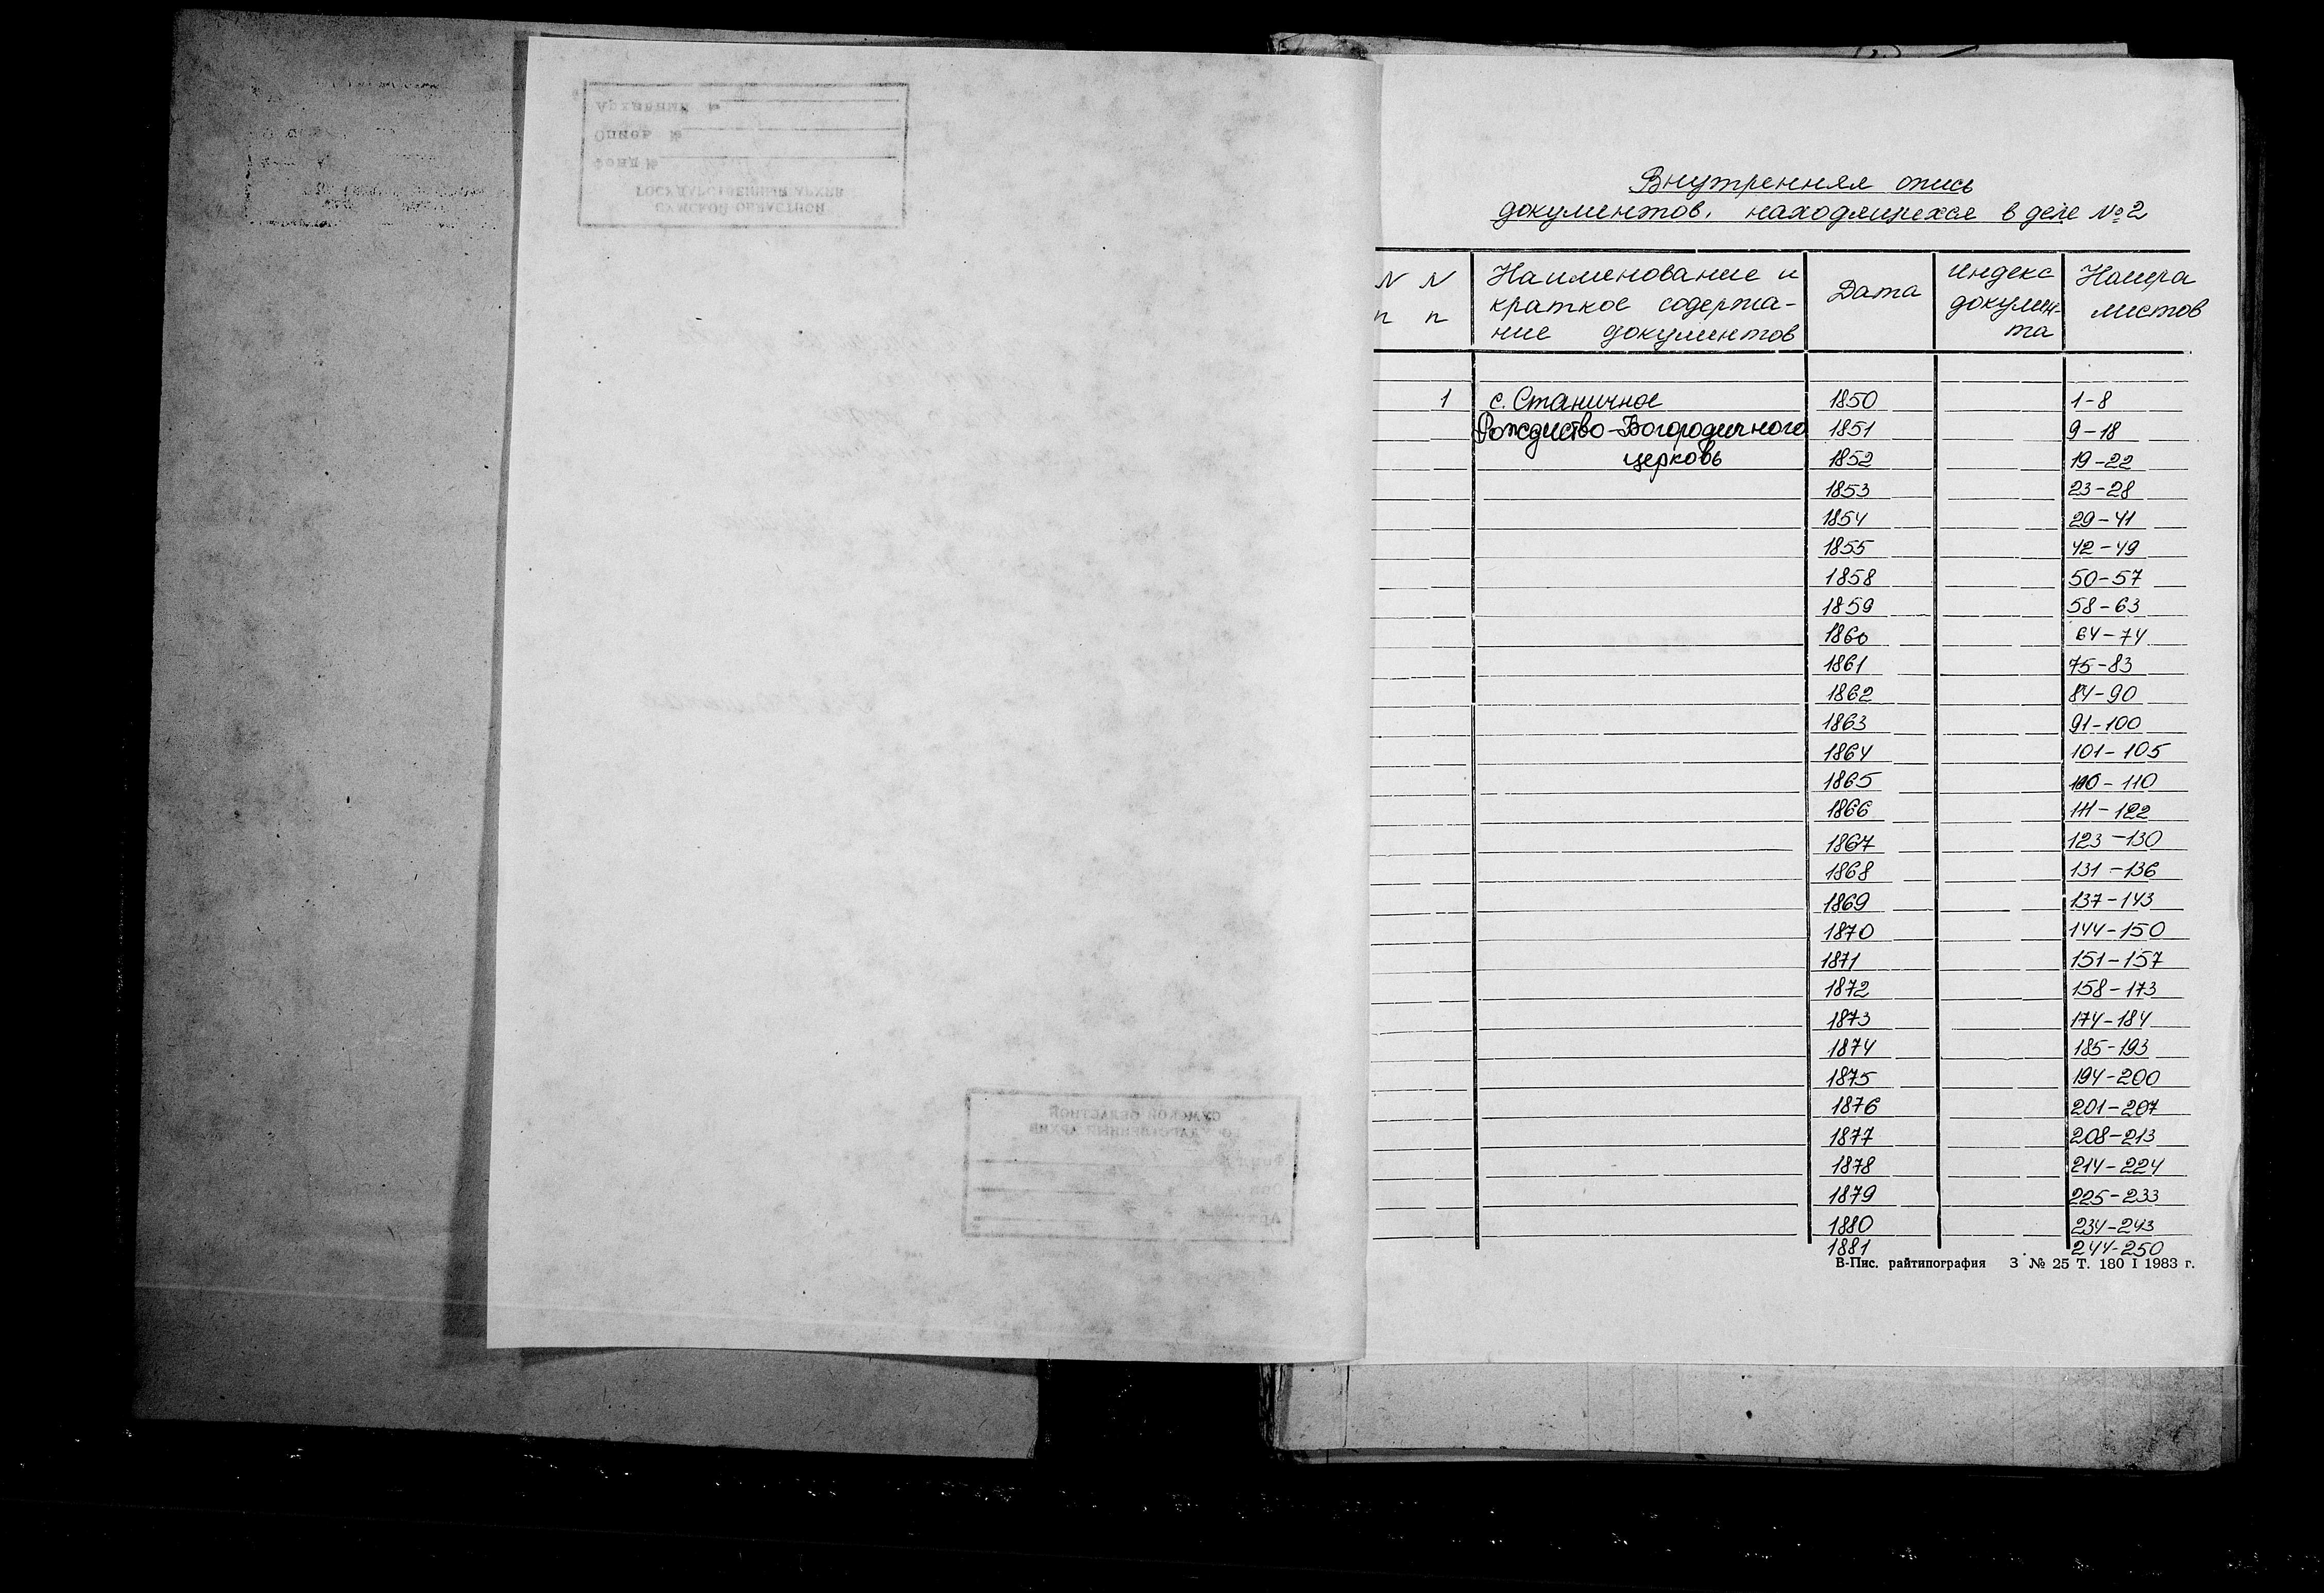 Архивный №
Опись №
Фонд №
ГОСУДАРСТВЕННЫЙ АРХИВ
СУМСКОЙ ОБЛАСТНОЙ
СУМСКОЙ ОБЛАСТНОЙ
ГОСУДАРСТВЕННЫЙ АРХИВ
Внутренняя опись
документов, находящихся в деле №2
N N п п Наименование и краткое содержание документов Дата Индекс документа Номера листов
1 с. Станичное 1850 1-8
Рождество-Богородичного 1851 9-18
церковь 1852 19-22
1853 23-28
1854 29-41
1855 42-49
1858 50-57
1859 58-63
1860 64-74
1861 75-83
1862 84-90
1863 91-100
1864 101-105
1865 -110
1866 111-122
1867 123-130
1868 131-136
1869 137-143
1870 144-150
1871 151-157
1872 158-173
1873 174-184
1874 185-193
1875 194-200
1876 201-207
1877 208-213
1878 214-224
1879 225-233
1880 234-243
1881 244-250
В-Пис. райтипография З № 25 Т. 180 I 1983 г.